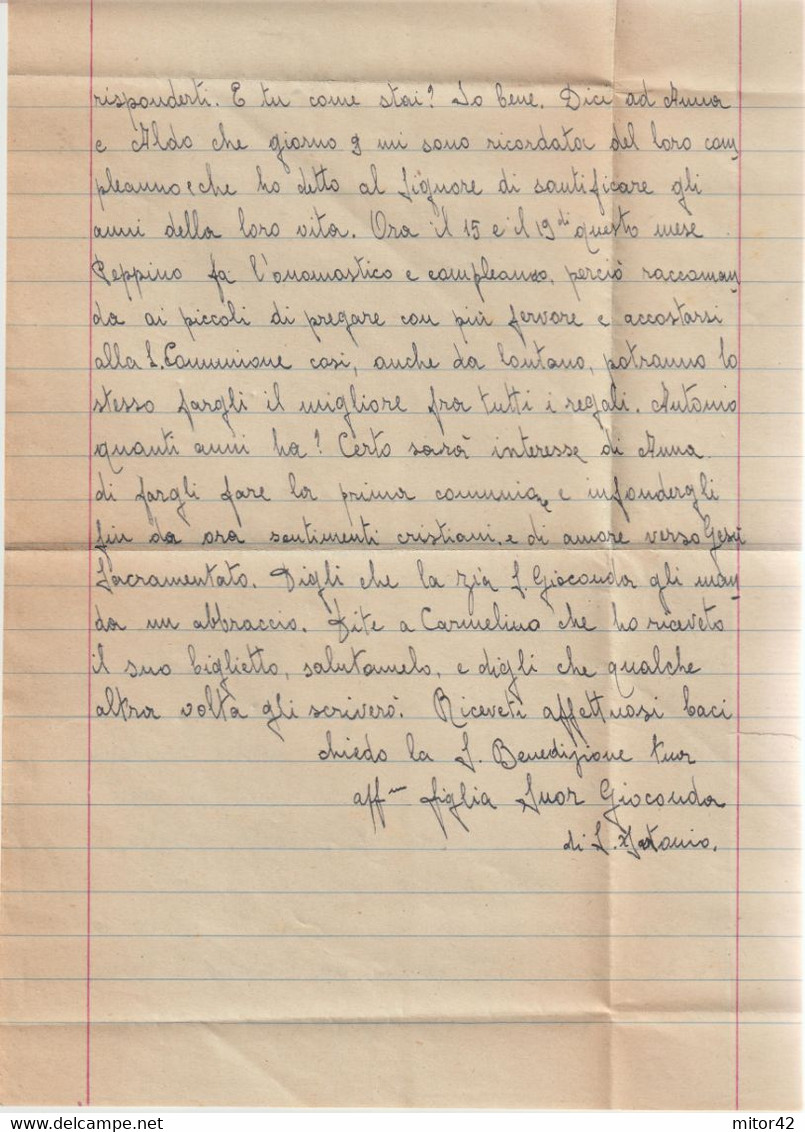 risponderti. E tu come stai? Io bene. Dici ad Anna
e Aldo che giorno 9 mi sono ricordata del loro com-
pleanno e che ho detto al Signore di santificare gli
anni della loro vita. Ora il 15 e il 19 di questo mese
Peppino fa l'onomastico e compleanno, perciò raccoman-
da ai piccoli di pregare con più fervore e accostarsi
alla S. Comunione così, anche da lontano, potranno lo
stesso fargli il migliore fra tutti i regali. Antonio
quanti anni ha? Certo sarà interesse di Anna
di fargli fare la prima comunione e infondergli
fin da ora sentimenti cristiani, e di amore verso Gesù
Sacramentato. Digli che la zia S. Gioconda gli man-
da un abbraccio. Dite a Carmelino che ho riceveto
il suo biglietto, salutamelo, e digli che qualche
altra volta gli scriverò. Riceveti affettuosi baci
chiedo la S. Benedizione tua
aff.ma figlia Suor Gioconda
di S.
mitor42